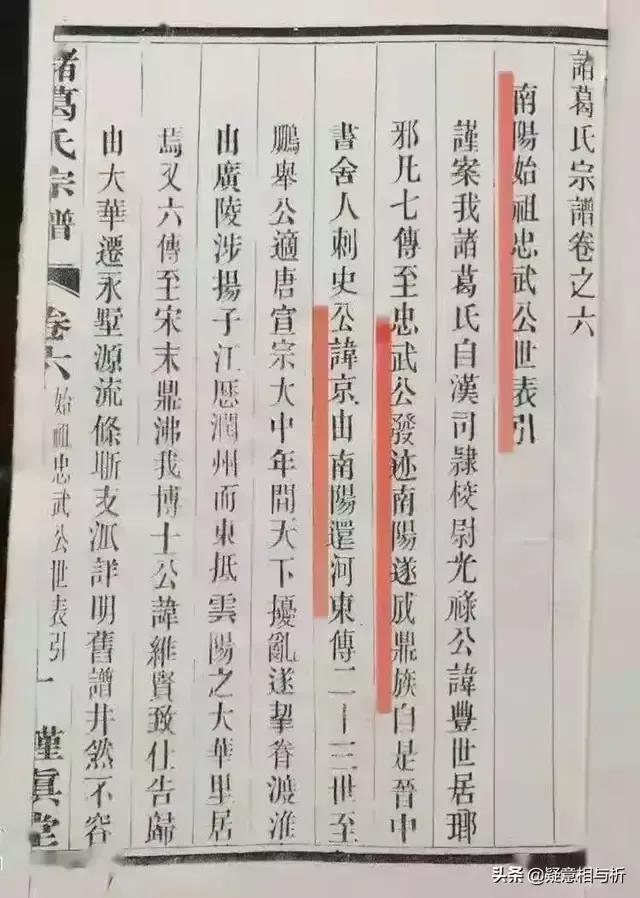 諸葛氏宗譜卷之六
南陽始祖忠武公世表引
謹案我諸葛氏自漢司隸校尉光祿公諱豐世居瑯
邪凡七傳至忠武公發迹南陽遂成鼎族自是晉中
書舍人刺史公諱京由南陽還河東傳二十三世至
鵬舉公適唐宣宗大中年間天下擾亂遂挈眷渡淮
由廣陵涉揚子江歷潤州而東抵雲陽之大華里居
焉又六傳至宋末鼎沸我博士公諱維賢致仕告歸
由大華遷永墅源流條晰支派詳明舊譜井然不容
諸葛氏宗譜 卷六 始祖忠武公世表引 一 瑾真堂
头条 @疑意相与析